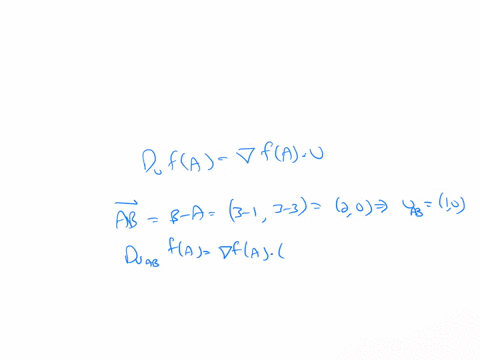 Dᵤ f(A) = ∇ f(A) · U
→AB = B-A = (3-1, 3-3) = (2,0) ⇒ U_AB = (1,0)
D_{U_AB} f(A) = ∇f(A) · (